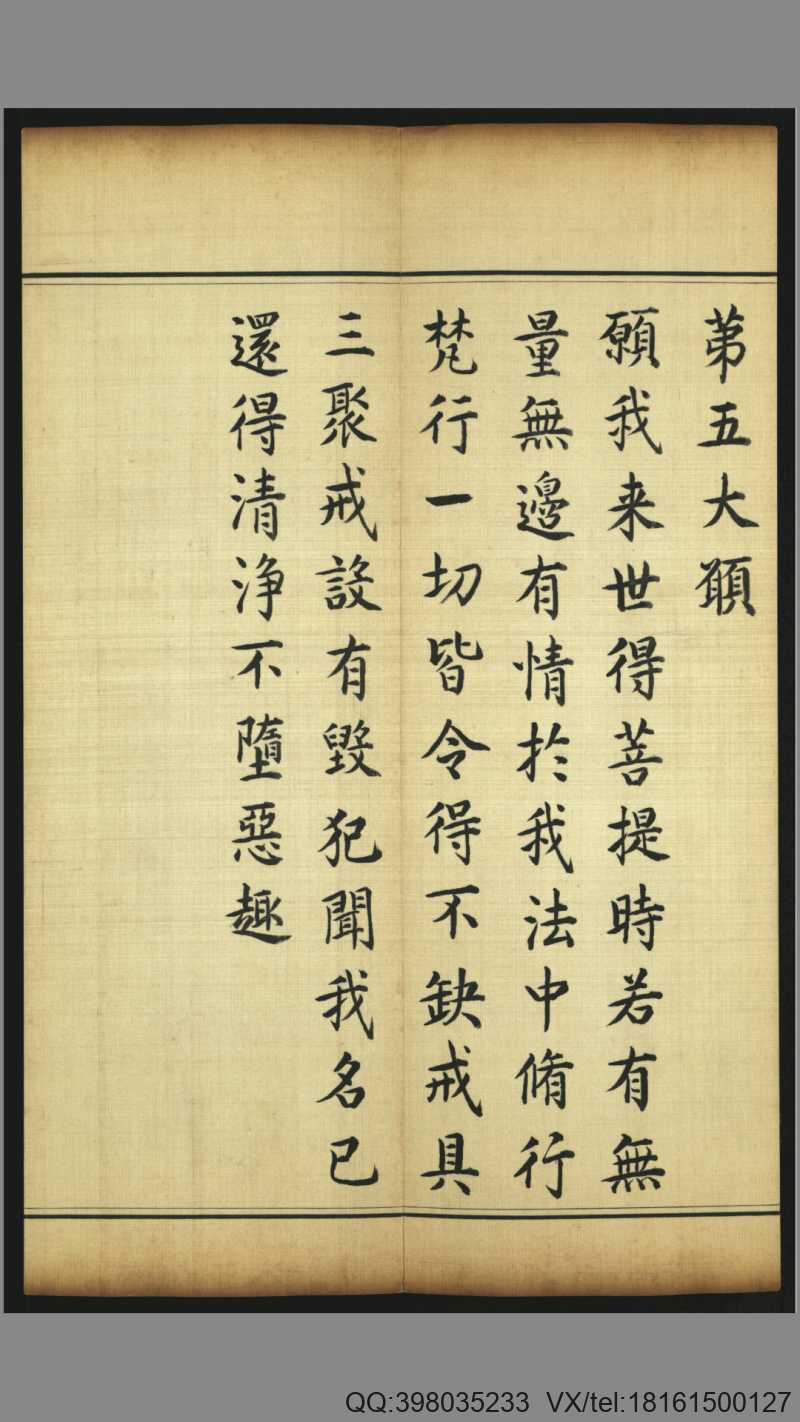 苐五大願
願我来世得菩提時若有無
量無邊有情於我法中脩行
梵行一切皆令得不缺戒具
三聚戒設有毀犯聞我名已
還得清淨不墮惡趣
QQ:398035233 VX/tel:18161500127